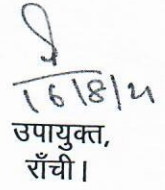 16/8/21
उपायुक्त,
राँची।